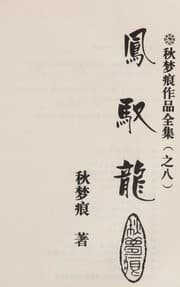 ❊秋梦痕作品全集（之八）
鳳馭龍
秋梦痕 著
秋夢痕